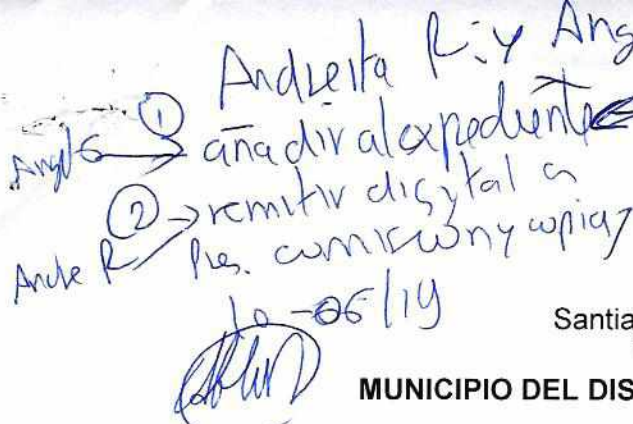 Andreita R. y Ang
① añadir al expediente
② → remitir digital a
Pres. comisión y copia
10-06/19
Santia
MUNICIPIO DEL DIS